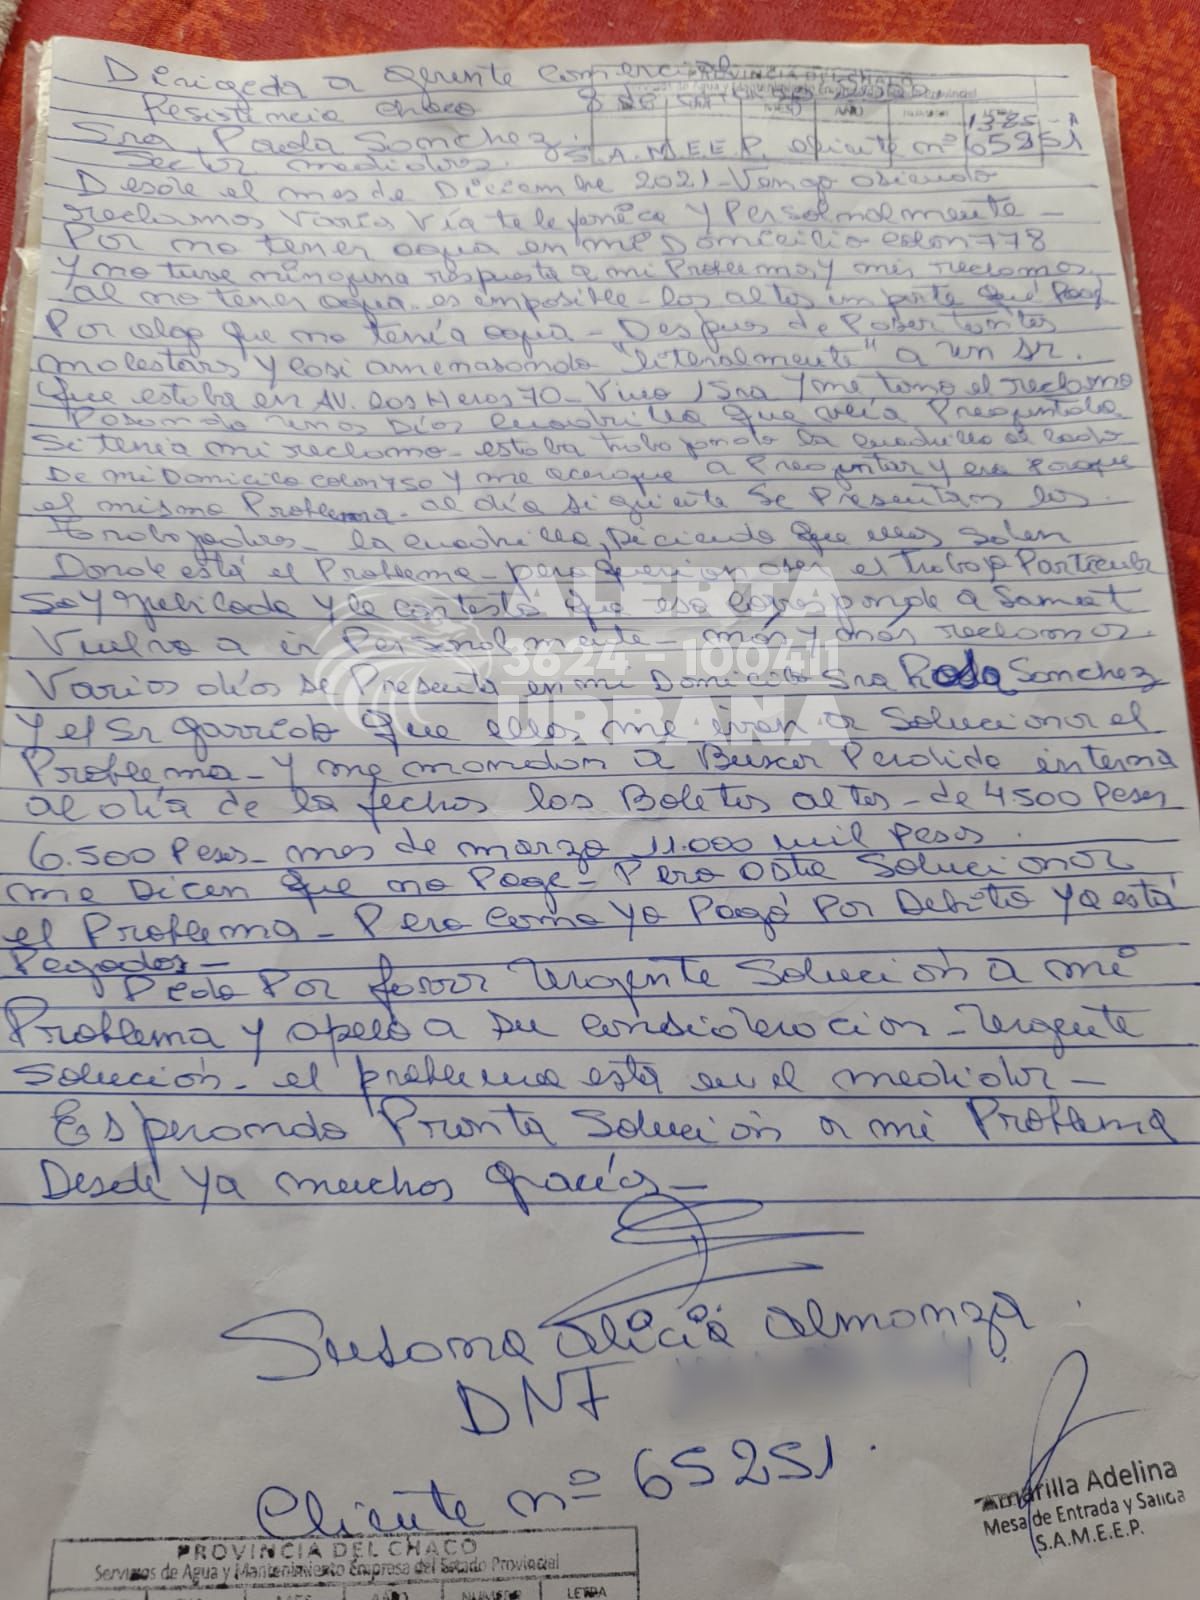 Dirigeda a Gerente Comercial
Resistencia Chaco
PROVINCIA DEL CHACO
Sra Paola Sanchez.
1385 - A
Sector medidores. S.A.M.E.E.P. cliente nº 65251
Desde el mes de Diciembre 2021 - Vengo asiendo
reclamos varios Vía telefonica y Personalmente -
Por no tener agua en mi Domicilio colon 778
Y no tuve ninguna respuesta a mi Problema y mis reclamos
al no tener agua es imposible - los altos importe que Pago
Por algo que no tenía agua - Despues de Pasar tantos
molestars y casi amenasando "literalmente" a un Sr.
Que estaba en AV. Los Heros 70 - Vino / Sra y me tomo el reclamo
Pasando unos Días cuadrilla que veía Preguntaba
Si tenia mi reclamo - estaba trabajando la cuadrilla al lado
De mi Domicilio colon 750 y me acerque a Preguntar y era Porque
el mismo Problema - al día siguiente se Presentan los
trabajadores - la cuadrilla, Diciendo que ellos saben
Donde está el Problema - pero querian aser el trabajo Particular
Soy jubilada y le contesto que eso corresponde a Sameet
Vuelvo a ir Personalmente - mas y más reclamos.
Varios días se Presenta en mi Domicilio Sra Sanchez
Y el Sr Garrido que ellos me ivan a Solucionar el
Problema - Y me mandan a Buscar Perdida interna
al día de la fechas los Boletos altos - de 4.500 Pesos
6.500 Pesos - mes de marzo 11.000 mil Pesos.
me Dicen que no Page - Pero asta Solucionar
el Problema - Pero como yo Pagó Por Debito Ya está
Pagados -
Pedo Por favor Urgente Solución a mi
Problema y apelo a su consideracion - Urgente
Solución - el problema está en el medidor -
Esperando Pronta Solución a mi Problema
Desde ya muchos gracias -
Susana Alicia Almonza
DNI
Cliente nº 65251.
Amarilla Adelina
Mesa de Entrada y Salida
S.A.M.E.E.P.
PROVINCIA DEL CHACO
Servicios de Agua y Mantenimiento Empresa del Estado Provincial
MES AÑO NUMERO LETRA
ALERTA
3624 - 100411
URBANA